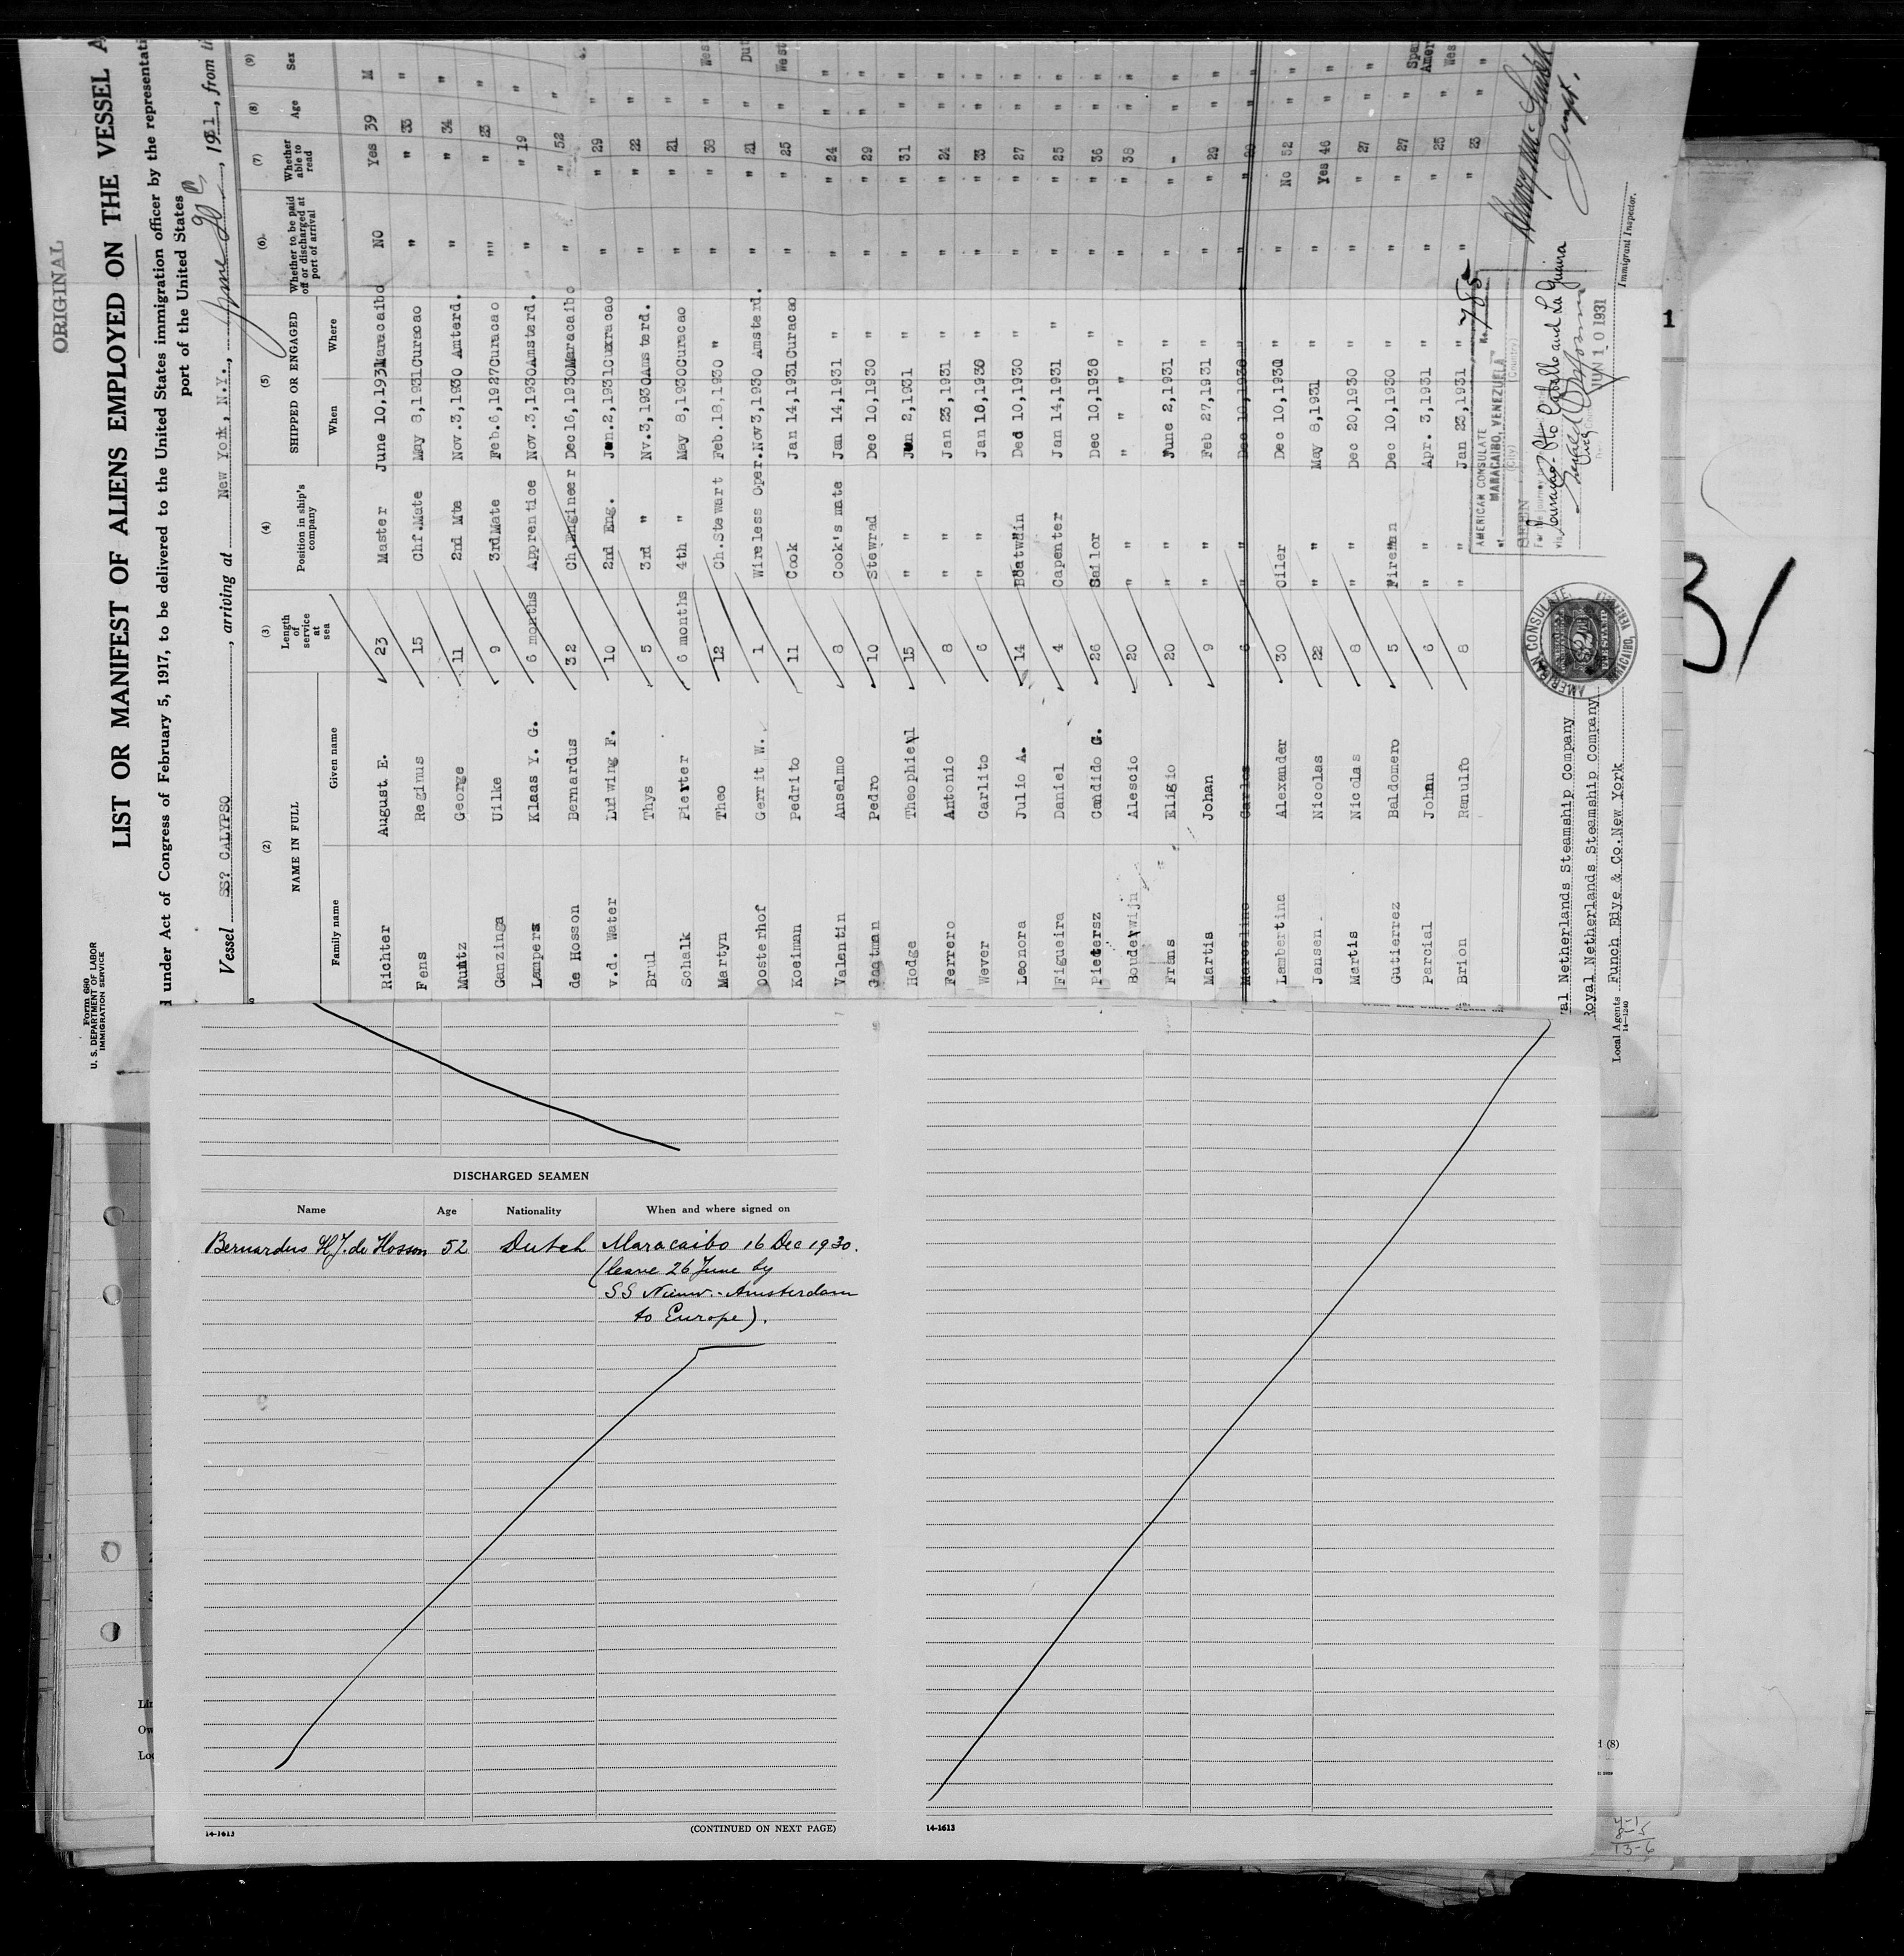 ORIGINAL
Form 680
U. S. DEPARTMENT OF LABOR
IMMIGRATION SERVICE
LIST OR MANIFEST OF ALIENS EMPLOYED ON THE VESSEL A
d under Act of Congress of February 5, 1917, to be delivered to the United States immigration officer by the representati
port of the United States
Vessel SS? CALYPSO, arriving at New York, N.Y., June 20, 1931, from
(2) (3) (4) (5) (6) (7) (8) (9)
NAME IN FULL Length of service at sea Position in ship's company SHIPPED OR ENGAGED Whether to be paid off or discharged at port of arrival Whether able to read Age Sex
Family name Given name When Where
Richter August E. 23 Master June 10,1931 Maracaibo NO Yes 39 M
Fens Regimus 15 Chf.Mate May 8,1931 Curacao " " 33 "
Muntz George 11 2nd Mte Nov.3,1930 Amterd. " " 34 "
Ganzinga Uilke 9 3rdMate Feb.6,1927 Curacao "" " 23 "
Lempers Klaas Y. G. 6 months Apprentice Nov.3,1930 Amsterd. " " 19 "
de Hosson Bernardus 32 Ch.Engineer Dec16,1930 Maracaibo " " 52 "
v.d. Water Ludwing F. 10 2nd Eng. Jan.2,1931 Curacao " " 29 "
Brul Thys 5 3rd " Nv.3,1930 Amsterd. " " 22 "
Schalk Pierter 6 months 4th " May 8,1930 Curacao " " 21 "
Martyn Theo 12 Ch.Stewart Feb.18,1930 " " " 38 " Wes
Oosterhof Gerrit W. 1 Wireless Oper. Nov3,1930 Amsterd. " " 21 " Dut
Koeiman Pedrito 11 Cook Jan 14,1931 Curacao " " 25 " West
Valentin Anselmo 8 Cook's mate Jan 14,1931 " " " 24 " "
Goatman Pedro 10 Stewrad Dec 10,1930 " " " 29 " "
Hodge Theophiel 15 " " Jun 2,1931 " " " 31 " "
Ferrero Antonio 8 " " Jan 23,1931 " " " 24 " "
Wever Carlito 6 " " Jan 18,1930 " " " 33 " "
Leonora Julio A. 14 Boatwain Ded 10,1930 " " " 27 " "
Figueira Daniel 4 Capenter Jan 14,1931 " " " 25 " "
Pietersz Candido G. 26 Sailor Dec 10,1930 " " " 36 " "
Boudewijn Alescio 20 " " " " " 38 " "
Frans Eligio 20 " June 2,1931 " " " - " "
Martis Johan 9 " Feb 27,1931 " " " 29 " "
Marcelino Carlos 6 " Dec 10,1930 " " " 20 " "
Lambertina Alexander 30 Oiler Dec 10,1930 " " No 52 " "
Jansen Nicolas 22 " May 8,1931 " " Yes 46 " "
Martis Nicolas 8 " Dec 20,1930 " " " 27 " "
Gutierrez Baldomero 5 Fireman Dec 10,1930 " " " 27 " Spa Amer
Parcial John 6 " Apr. 3,1931 " " " 25 " Wes
Brion Ranulfo 8 " Jan 23,1931 " " " 23 " "
AMERICAN CONSULATE No. 785
at MARACAIBO, VENEZUELA
(City) (Country)
SEEN
For the journey to
via Curacao- Pto Cabello and La Guaira
JUN 10 1931
Immigrant Inspector.
AMERICAN CONSULATE
MARACAIBO,
al Netherlands Steamship Company
Royal Netherlands Steamship Company
Local Agents Funch Edye & Co.New York
14-1240
1
31
DISCHARGED SEAMEN
Name Age Nationality When and where signed on
Bernardus H.J. de Hosson 52 Dutch Maracaibo 16 Dec 1930.
(leave 26 June by
SS Nieuw.-Amsterdam
to Europe).
14-1613
(CONTINUED ON NEXT PAGE)
14-1613
Lin
Ow
Loc
d (8)
4-1
8-5
13-6